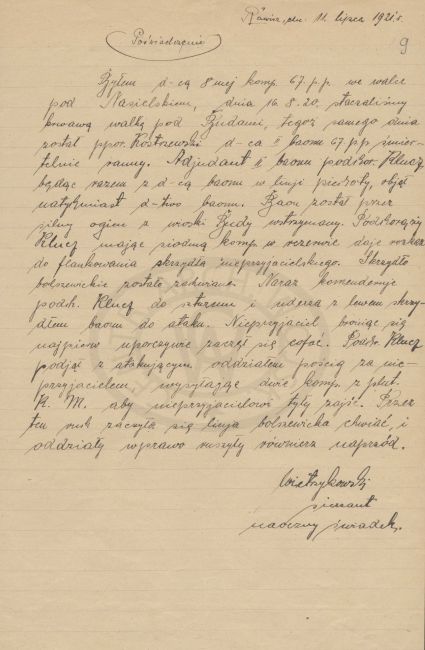 Równe, dn. 11. lipca 1921 r.
9
Poświadczenie
Byłem d-cą 8 mej komp. 67. p. p. we walce
pod Nasielskiem, dnia 16. 8. 20. staczaliśmy
krwawą walkę pod Budami, tegoż samego dnia
został ppor. Kostrzewski d-ca II baonu 67. p. p. śmier-
telnie ranny. Adjudant II baonu podchor. Klucz
będąc razem z d-cą baonu w linji piechoty, objął
natychmiast d-two baonu. Baon został przez
silny ogień z wioski Budy wstrzymany. Podchorąży
Klucz mając siódmą komp. w rezerwie daje rozkaz
do flankowania skrzydła nieprzyjacielskiego. Skrzydło
bolszewickie zostało zachwiane. Naraz komenderuje
podch. Klucz do szturmu i uderza z lewem skrzy-
dłem baonu do ataku. Nieprzyjaciel broniąc się
najpierw uporczywie zaczął się cofać. Podch. Klucz
podjął z atakującym oddziałem pościg za nie-
przyjacielem, wysyłając dwie komp. z plut.
K. M. aby nieprzyjacielowi tyły zajść. Przez
ten ruch zaczęła się linja bolszewicka chwiać, i
oddziały wprawo ruszyły również naprzód.
Wietrzykowski
sierżant
naoczny świadek.